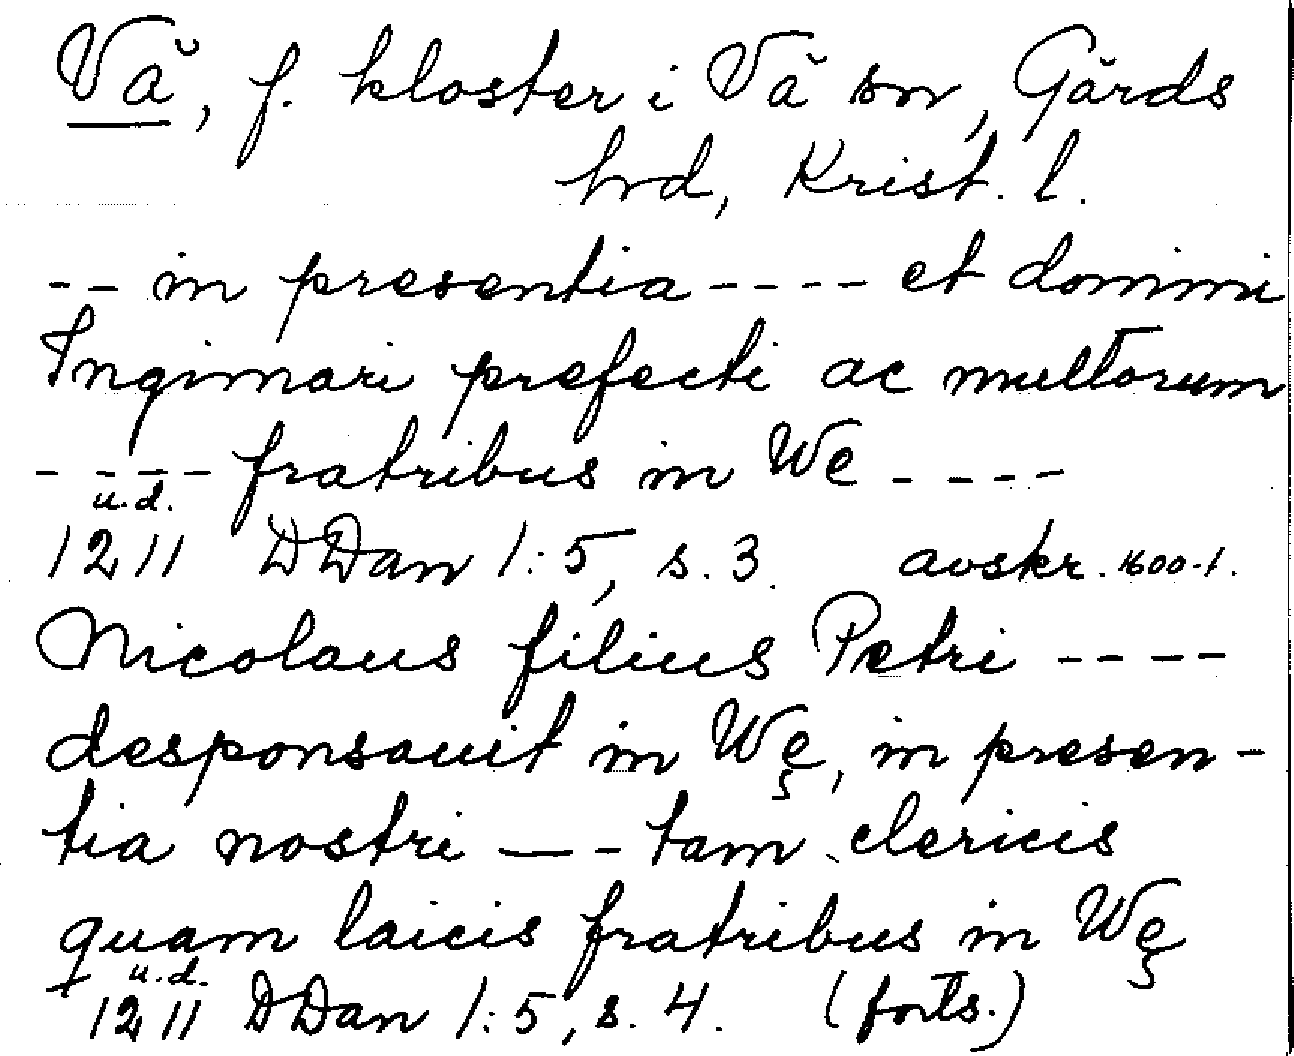 Vä, f. kloster i Vä sn, Gärds
hrd, Krist. l.
-- in presentia ---- et domini
Ingimari prefecti ac multorum
---- fratribus in We ----
u.d.
1211 DDan 1:5, s. 3. avskr. 1600-t.
Nicolaus filius Petri ----
desponsauit in Wę, in presen-
tia nostri --- tam clericis
quam laicis fratribus in Wę
u.d.
1211 DDan 1:5, s. 4. (forts.)